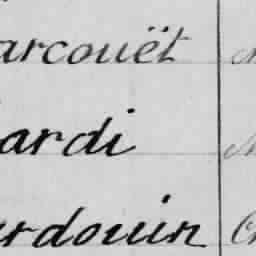 arcouët
ardi
rdouin